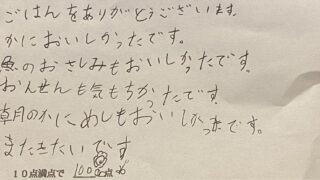 ごはんをありがとうございます。
かにおいしかったです。
魚のおさしみもおいしかったです。
おんせんも気もちかったです。
朝のかにめしもおいしかったです。
またきたいです
10点満点で 100点